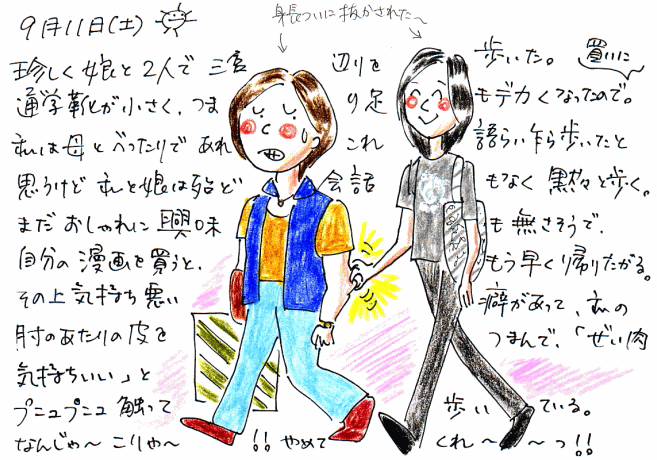 9月11日(土)
身長ついに抜かされた〜
珍しく娘と2人で三宮辺りを歩いた。買いに
通学靴が小さく、つまり足もデカくなったので。
私は母とべったりであれこれ語らい乍ら歩いたと
思うけど私と娘は殆ど会話もなく黙々と歩く。
まだおしゃれに興味も無さそうで、
自分の漫画を買うと、もう早く帰りたがる。
その上気持ち悪い癖があって、私の
肘のあたりの皮をつまんで、「ぜい肉
気持ちいい」と
プニュプニュ触って歩いている。
なんじゃ〜こりゃ〜!!やめてくれ〜〜っ!!